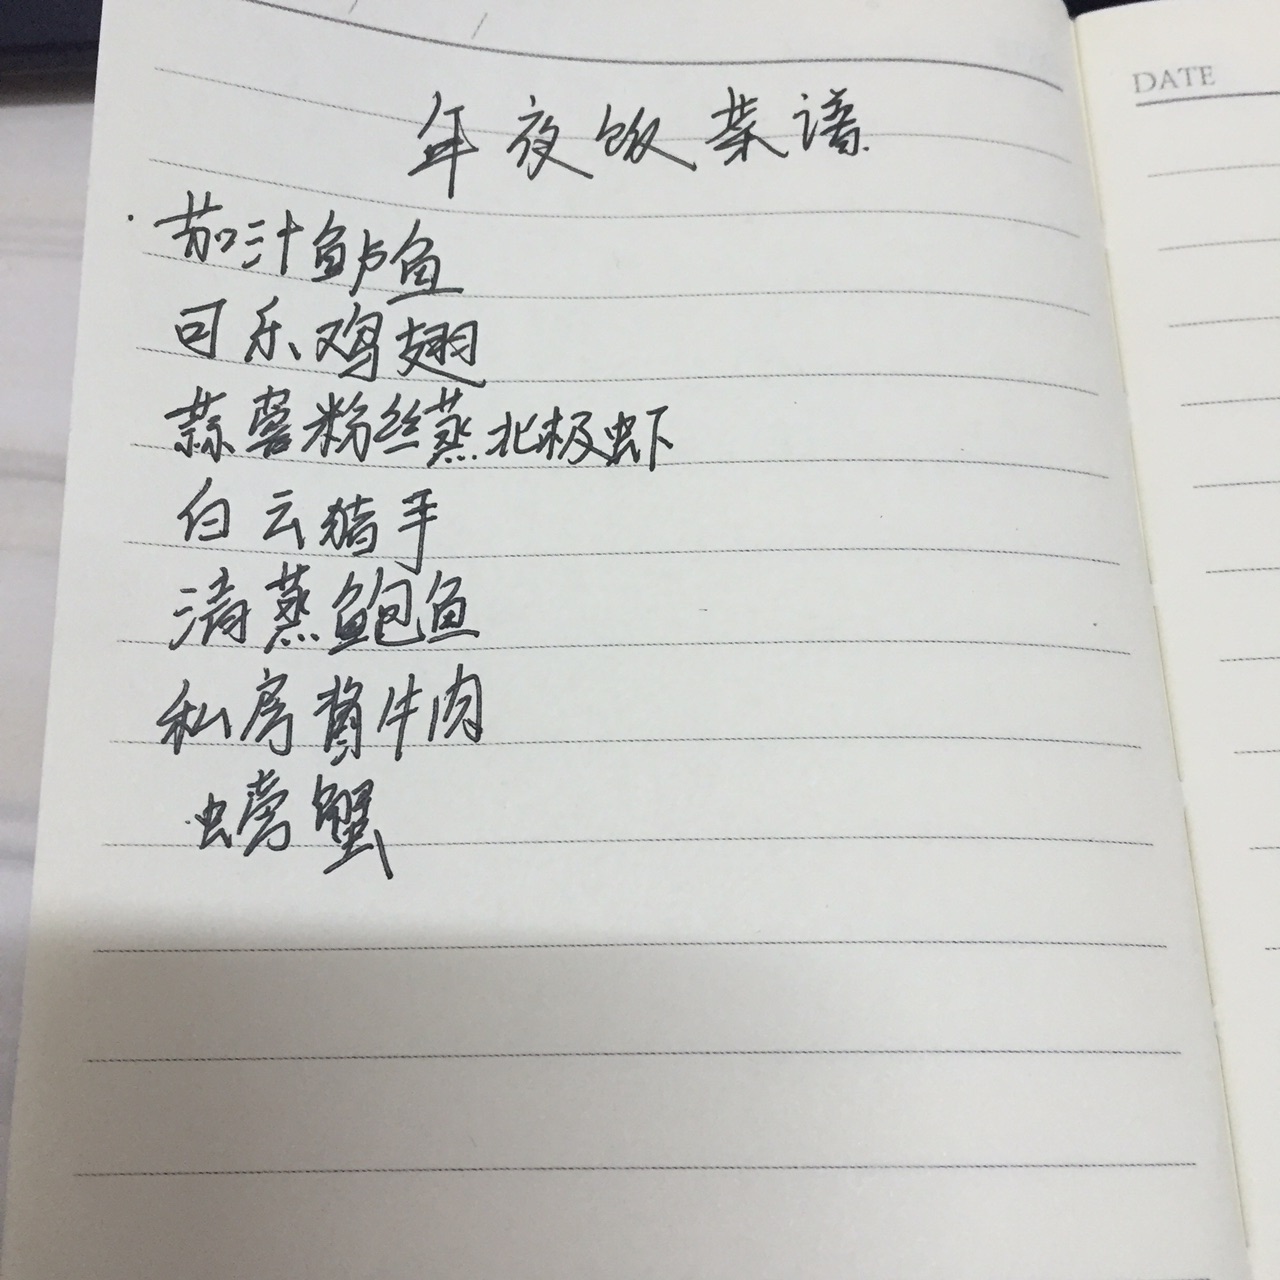 年夜饭菜谱
DATE
茄汁鲈鱼
可乐鸡翅
蒜蓉粉丝蒸北极虾
白云猪手
清蒸鲍鱼
私房酱牛肉
螃蟹